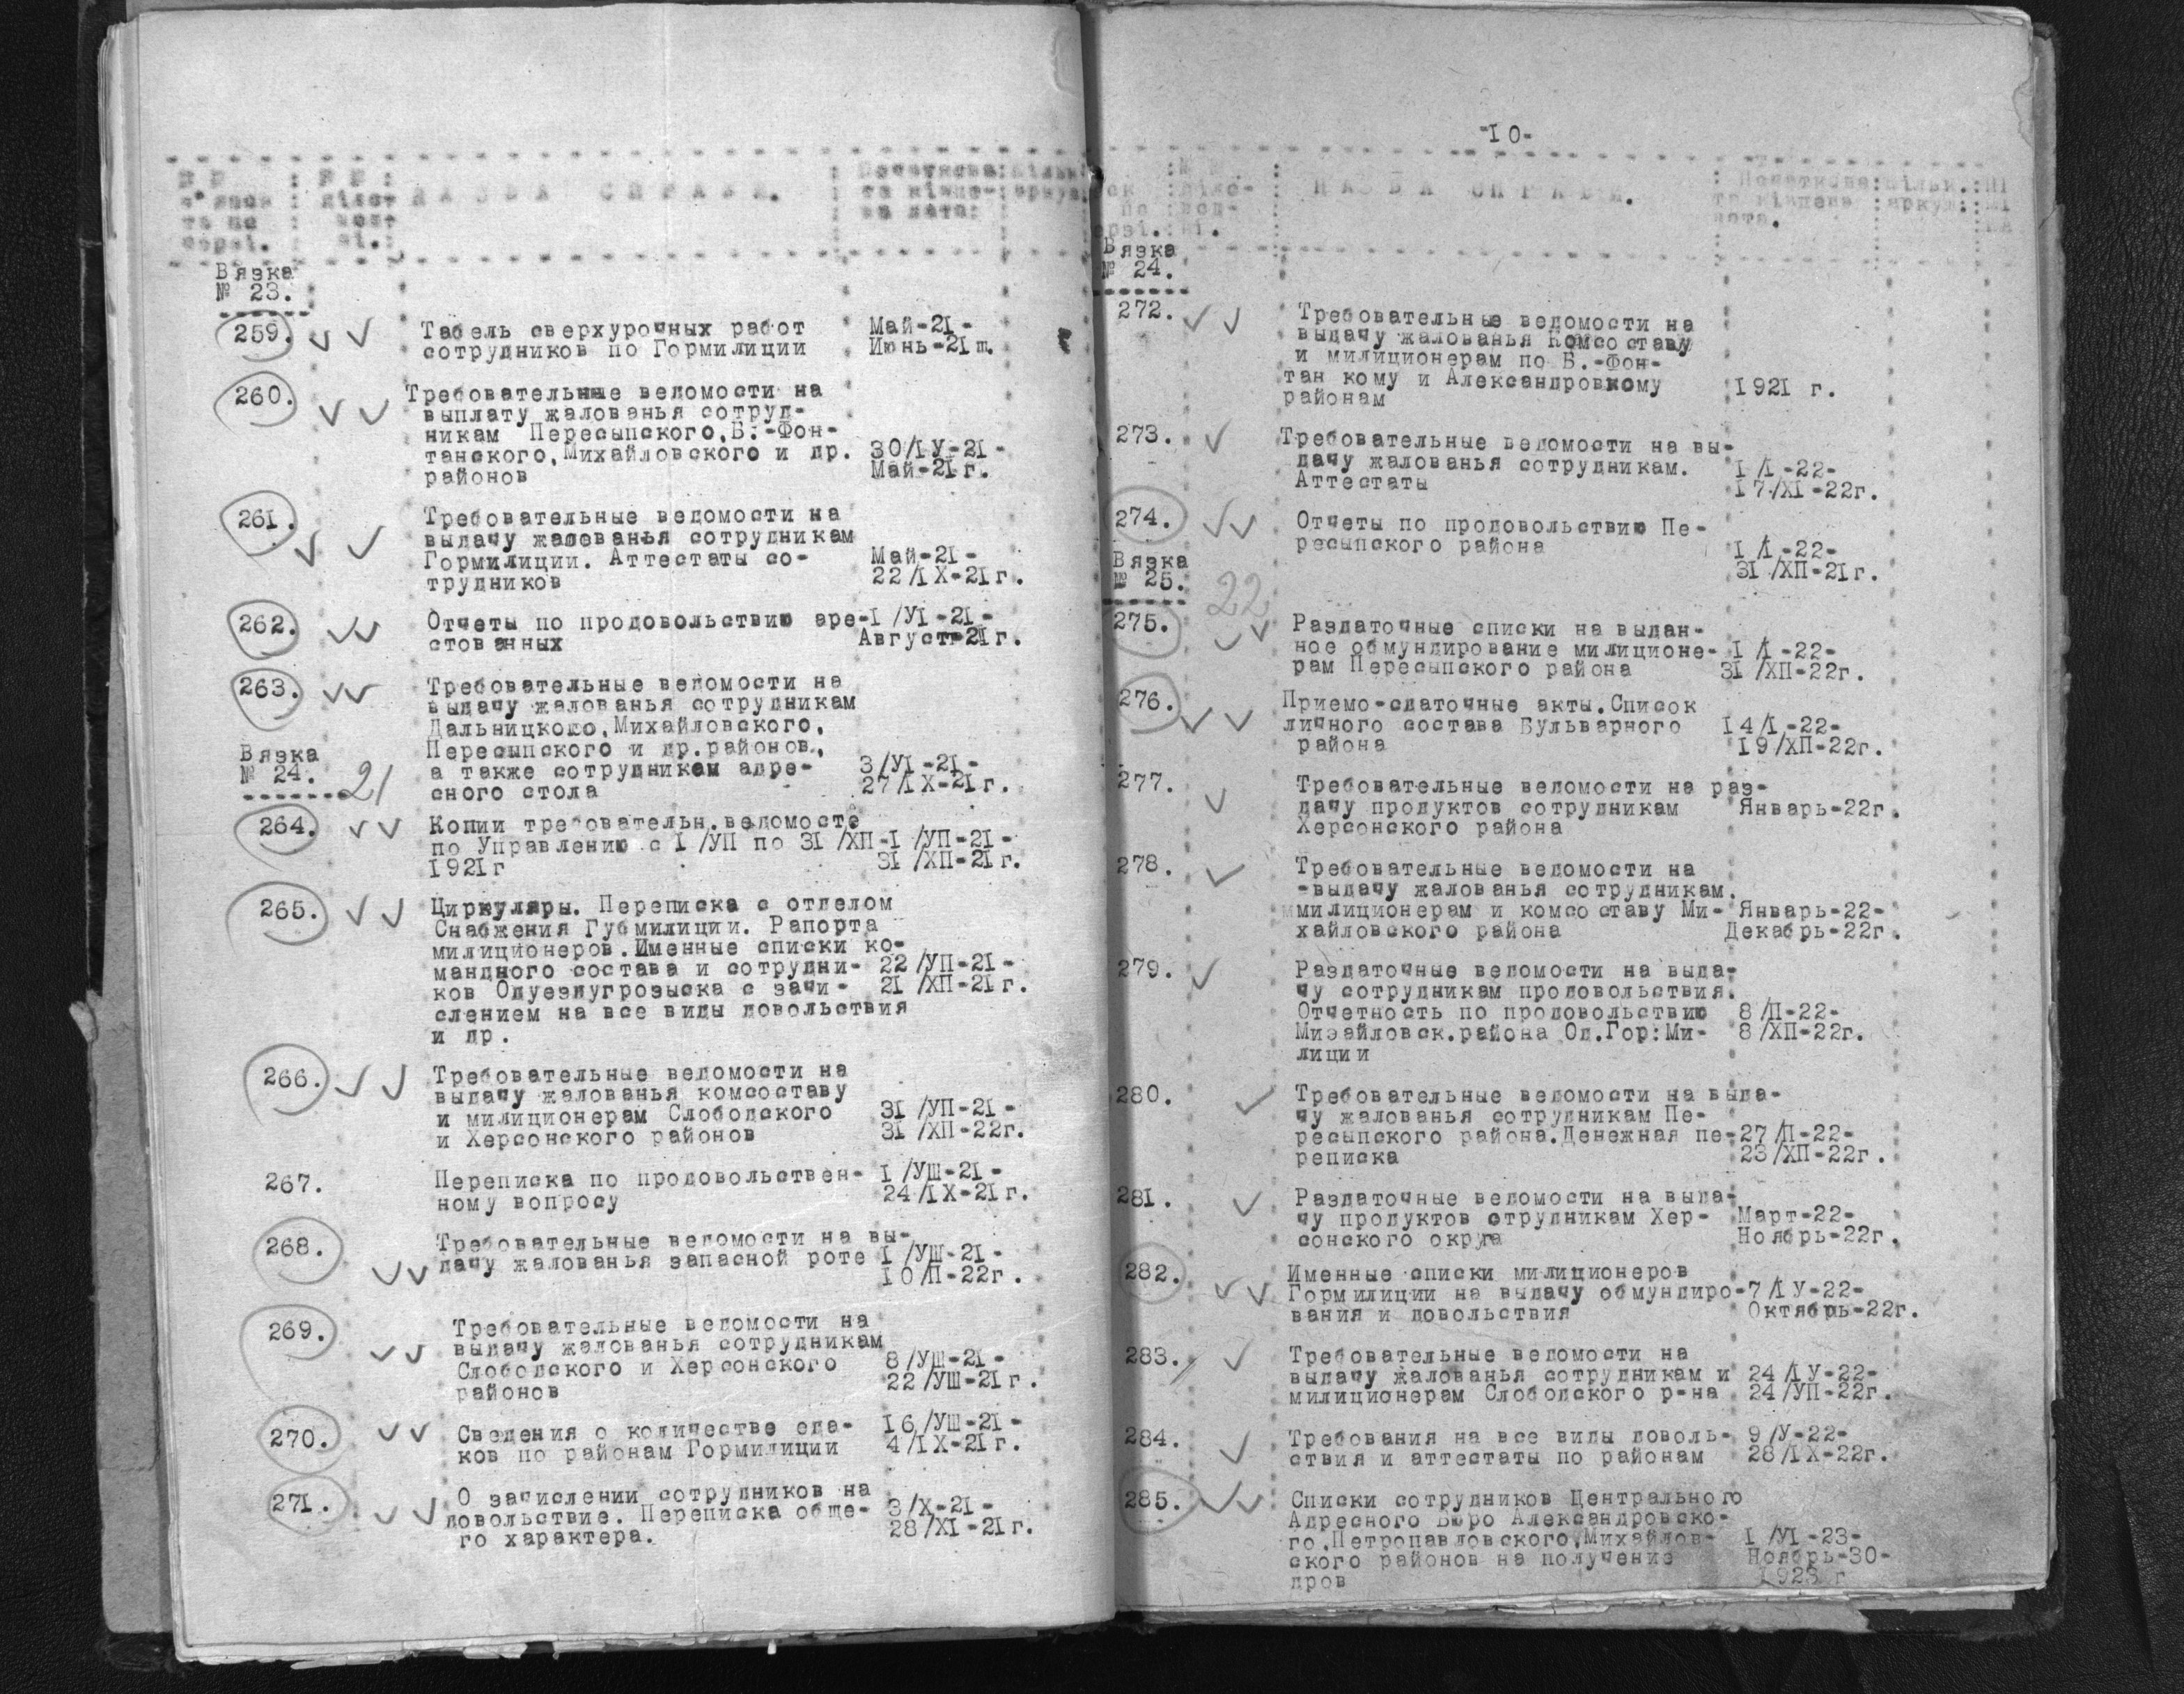 НАЗВА СПРАВИ.
Початкова
та кінце-
ва дата:
Вязка
№ 23.
259. Табель сверхурочных работ Май-21-
сотрудников по Гормилиции Июнь-21 г.
260. Требовательные ведомости на
выплату жалованья сотруд-
никам Пересыпского,Б.-Фон-
танского,Михайловского и др. 30/IУ-21-
районов Май-21г.
261. Требовательные ведомости на
выдачу жалованья сотрудникам
Гормилиции. Аттестаты со- Май-21-
трудников 22/IX-21г.
262. Отчеты по продовольствию аре- I/УI-21-
стованных Август-21г.
263. Требовательные ведомости на
выдачу жалованья сотрудникам
Дальницкого,Михайловского,
Пересыпского и др.районов,
а также сотрудникам адре- 3/УI-21-
сного стола 27/IX-21г.
Вязка
№ 24. 21
264. Копии требовательн.ведомосте
по Управлению с I/УП по 31/ХП- I/УП-21-
1921г 31/ХП-21г.
265. Циркуляры. Переписка с отделом
Снабжения Губмилиции. Рапорта
милиционеров.Именные списки ко-
мандного состава и сотрудни- 22/УП-21-
ков Одуездугрозыска с зачи- 21/ХП-21г.
слением на все виды довольствия
и др.
266. Требовательные ведомости на
выдачу жалованья комсоставу
и милиционерам Слободского 31/УП-21-
и Херсонского районов 31/ХП-22г.
267. Переписка по продовольствен- I/УШ-21-
ному вопросу 24/IX-21г.
268. Требовательные ведомости на вы-
дачу жалованья запасной роте I/УШ-21-
10/П-22г.
269. Требовательные ведомости на
выдачу жалованья сотрудникам
Слободского и Херсонского 8/УШ-21-
районов 22/УШ-21г.
270. Сведения о количестве еда- 16/УШ-21-
ков по районам Гормилиции 4/IX-21г.
271. О зачислении сотрудников на
довольствие. Переписка обще- 3/Х-21-
го характера. 28/XI-21г.
-10-
НАЗВА СПРАВИ.
Початкова
та кінцева
дата.
Вязка
№ 24.
272. Требовательные ведомости на
выдачу жалованья Комсоставу
и милиционерам по Б.-Фон-
тан кому и Александровкому 1921 г.
районам
273. Требовательные ведомости на вы-
дачу жалованья сотрудникам. I/I-22-
Аттестаты 17/XI-22г.
274. Отчеты по продовольствию Пе-
ресыпского района I/I-22-
31/ХП-21г.
Вязка
№ 25. 22
275. Раздаточные списки на выдан-
ное обмундирование милиционе- I/I-22-
рам Пересыпского района 31/ХП-22г.
276. Приемо-сдаточные акты.Список
личного состава Бульварного 14/I-22-
района 19/ХП-22г.
277. Требовательные ведомости на раз-
дачу продуктов сотрудникам Январь-22г.
Херсонского района
278. Требовательные ведомости на
-выдачу жалованья сотрудникам.
милиционерам и комсоставу Ми- Январь-22-
хайловского района Декабрь-22г.
279. Раздаточные ведомости на выда-
чу сотрудникам продовольствия.
Отчетность по продовольствию 8/П-22-
Мизайловск.района Од.Гор:Ми- 8/ХП-22г.
лиции
280. Требовательные ведомости на выда-
чу жалованья сотрудникам Пе-
ресыпского района.Денежная пе- 27/П-22-
реписка 23/ХП-22г.
281. Раздаточные ведомости на выда-
чу продуктов отрудникам Хер- Март-22-
сонского округа Ноябрь-22г.
282. Именные списки милиционеров
Гормилиции на выдачу обмундиро- 7/IУ-22-
вания и довольствия Октябрь-22г.
283. Требовательные ведомости на
выдачу жалованья сотрудникам и 24/IУ-22-
милиционерам Слободского р-на 24/УП-22г.
284. Требования на все виды доволь- 9/У-22-
ствия и аттестаты по районам 28/IX-22г.
285. Списки сотрудников Центрального
Адресного Бюро Александровско-
го,Петропавловского,Михайлов- I/УI-23-
ского районов на получение Ноябрь-30-
дров 1923 г